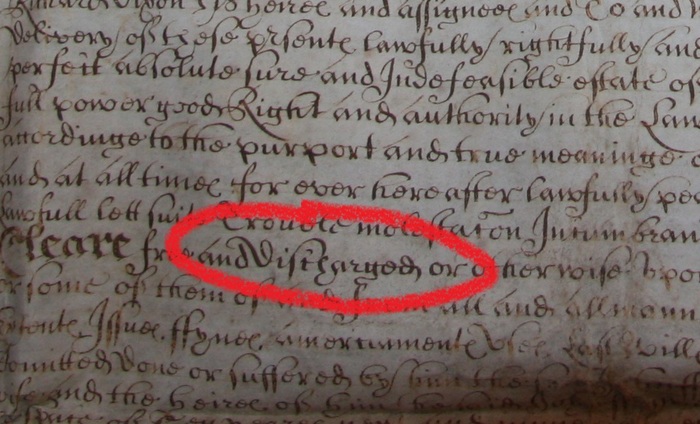 upon his heires and assignees and to and
delivery of these presente lawfully rightfully and
perfeit absolute sure and Indefeasible estate of
full power good Right and authority in the Law
accordinge to the purport and true meaninge
and at all times for ever hereafter lawfully
lawfull lett suit Trouble molestacon Incumbran
Cleare free and Discharged or otherwise upo
or some of them all and all mann
Issues ffynes amerciamente Uses Last Will
comitted done or suffered by him the
and the heires of him